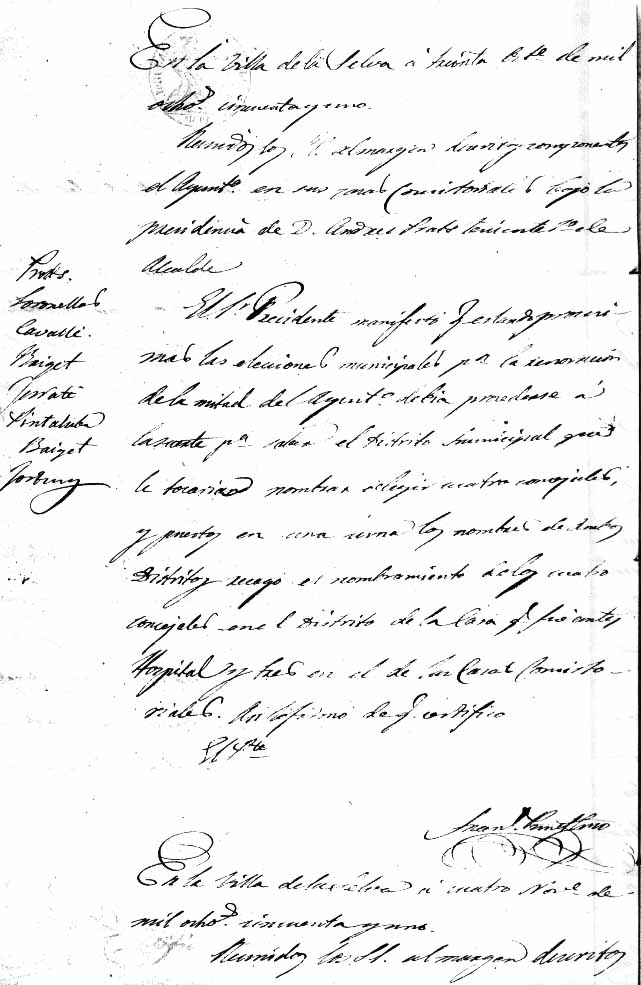 En la Villa de la Selva á treinta 8.bre de mil
ocho.s cincuenta y uno.
Reunidos los SS. al margen descritos y componentes
el Ayunt.o en sus casas Consistoriales bajo la
presidencia de D. Andres Prats teniente 1.o de
Alcalde
Prats.
Coronellas
Cavallé.
Baiget
Ferraté
Pintaluba
Baiget
El S.r Precidente manifestó q. estando procsi-
mas las elecciones municipales p.a la renovacion
de la mitad del Ayunt.o debia procederse á
la suerte p.a saber el Distrito Municipal que
le tocaria nombrar ó elegir cuatro concejales,
y puestos en una urna los nombres de ambos
Distritos recayó el nombramiento de los cuatro
concejales en el Distrito de la Casa q. fué antes
Hospital y tres en el de las Casas Consisto-
riales. Así lo firmó de q. certifico
El P.te
Fran.o
En la Villa de la Selva á cuatro Nov.e de
mil ocho.s cincuenta y uno.
Reunidos los SS. al margen descritos